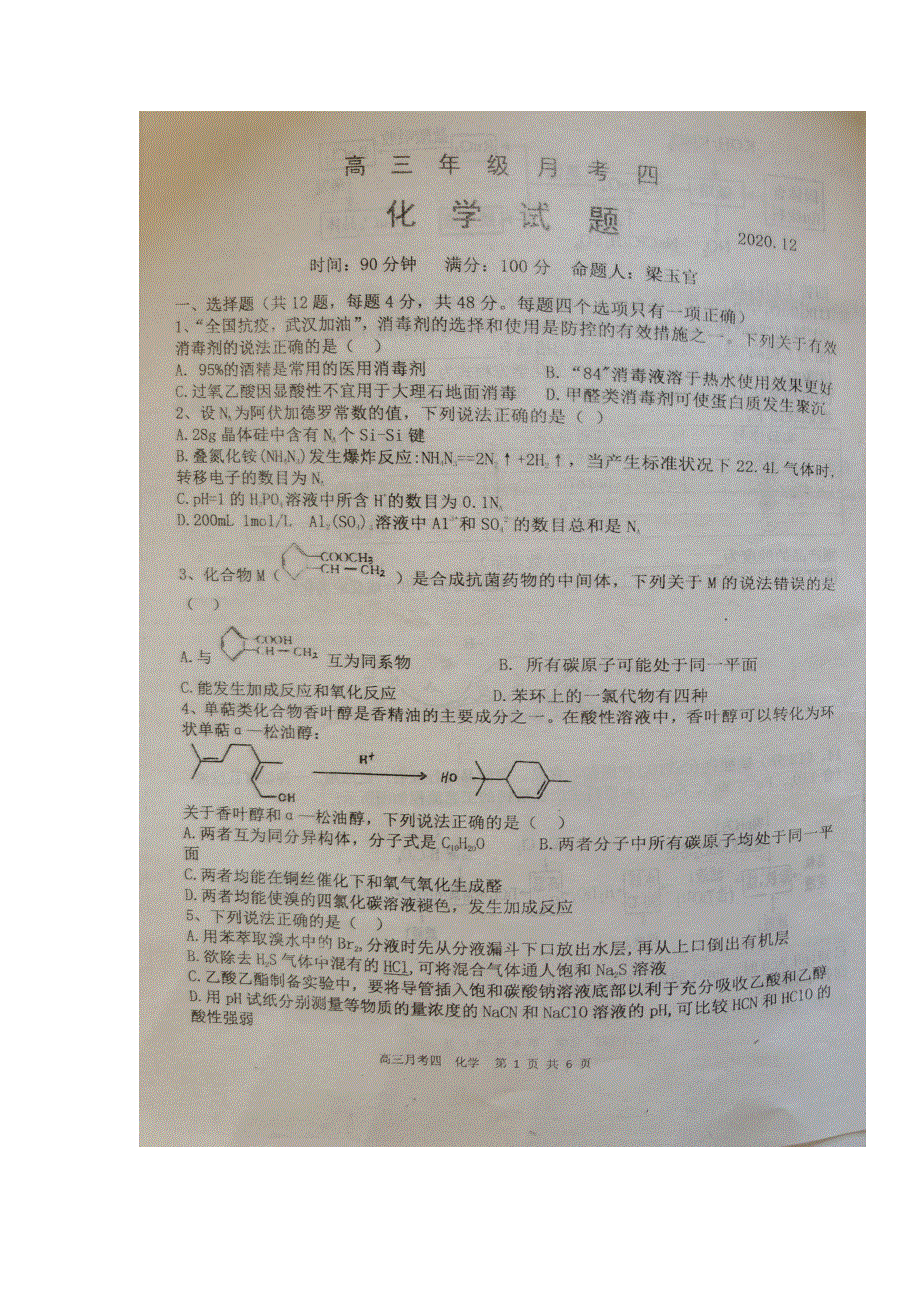 高三年级月考四
化学试题
2020.12
时间：90分钟 满分：100分 命题人：梁玉官
一、选择题（共12题，每题4分，共48分。每题四个选项只有一项正确）
1、“全国抗疫，武汉加油”，消毒剂的选择和使用是防控的有效措施之一。下列关于有效
消毒剂的说法正确的是（ ）
A. 95%的酒精是常用的医用消毒剂 B. “84”消毒液溶于热水使用效果更好
C.过氧乙酸因显酸性不宜用于大理石地面消毒 D.甲醛类消毒剂可使蛋白质发生聚沉
2、设Nₐ为阿伏加德罗常数的值，下列说法正确的是（ ）
A.28g晶体硅中含有Nₐ个Si-Si键
B.叠氮化铵(NH₄N₃)发生爆炸反应:NH₄N₃==2N₂↑+2H₂↑，当产生标准状况下22.4L气体时，
转移电子的数目为Nₐ
C.pH=1的H₃PO₄溶液中所含H⁺的数目为0.1Nₐ
D.200mL 1mol/L Al₂(SO₄)₃溶液中Al³⁺和SO₄²⁻的数目总和是Nₐ
3、化合物M（ COOCH₃ CH—CH₂ ）是合成抗菌药物的中间体，下列关于M的说法错误的是
（ ）
A.与 COOH CH—CH₂ 互为同系物 B. 所有碳原子可能处于同一平面
C.能发生加成反应和氧化反应 D.苯环上的一氯代物有四种
4、单萜类化合物香叶醇是香精油的主要成分之一。在酸性溶液中，香叶醇可以转化为环
状单萜α—松油醇：
H⁺
OH HO
关于香叶醇和α—松油醇，下列说法正确的是（ ）
A.两者互为同分异构体，分子式是C₁₀H₂₀O B.两者分子中所有碳原子均处于同一平
面
C.两者均能在铜丝催化下和氧气氧化生成醛
D.两者均能使溴的四氯化碳溶液褪色，发生加成反应
5、下列说法正确的是（ ）
A.用苯萃取溴水中的Br₂,分液时先从分液漏斗下口放出水层,再从上口倒出有机层
B.欲除去H₂S气体中混有的HCl,可将混合气体通人饱和Na₂S溶液
C.乙酸乙酯制备实验中，要将导管插入饱和碳酸钠溶液底部以利于充分吸收乙酸和乙醇
D.用pH试纸分别测量等物质的量浓度的NaCN和NaClO溶液的pH,可比较HCN和HClO的
酸性强弱
高三月考四 化学 第 1 页 共 6 页